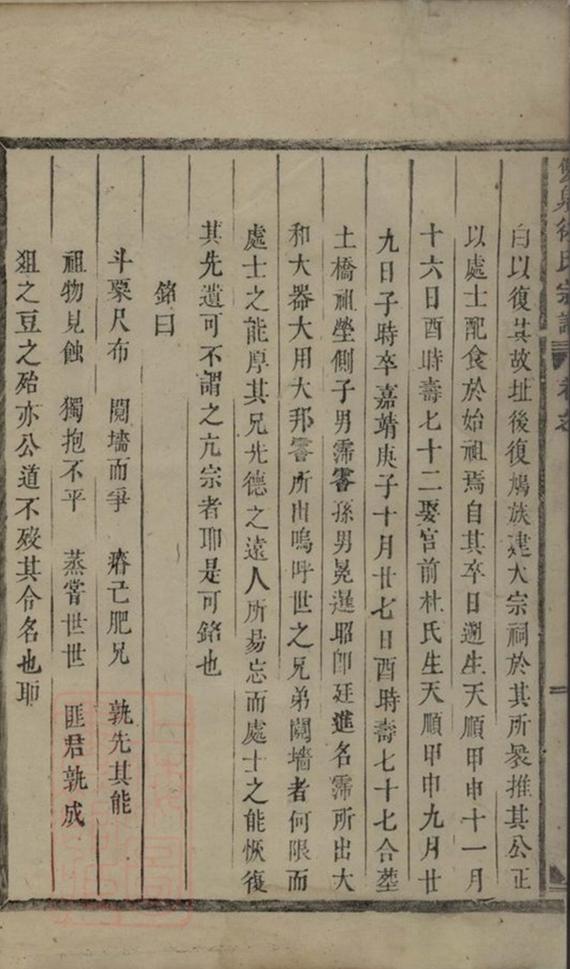 徐氏宗譜
白以復其故址後復鳩族建大宗祠於其所衆推其公正
以處士配食於始祖焉自其卒日遡生天順甲申十一月
十六日酉時壽七十二娶宫前杜氏生天順甲申九月廿
九日子時卒嘉靖庚子十月廿七日酉時壽七十七合塟
土橋祖塋側子男霈霽孫男晃暹昭郎廷進名霈所出大
和大器大用大邦霽所出嗚呼世之兄弟鬩墻者何限而
處士之能厚其兄先德之遠人所易忘而處士之能恢復
其先遺可不謂之亢宗者耶是可銘也
銘曰
斗粟尺布　鬩墻而爭　瘠己肥兄　孰先其能
祖物見蝕　獨抱不平　蒸嘗世世　匪君孰成
俎之豆之殆亦公道不歿其令名也耶